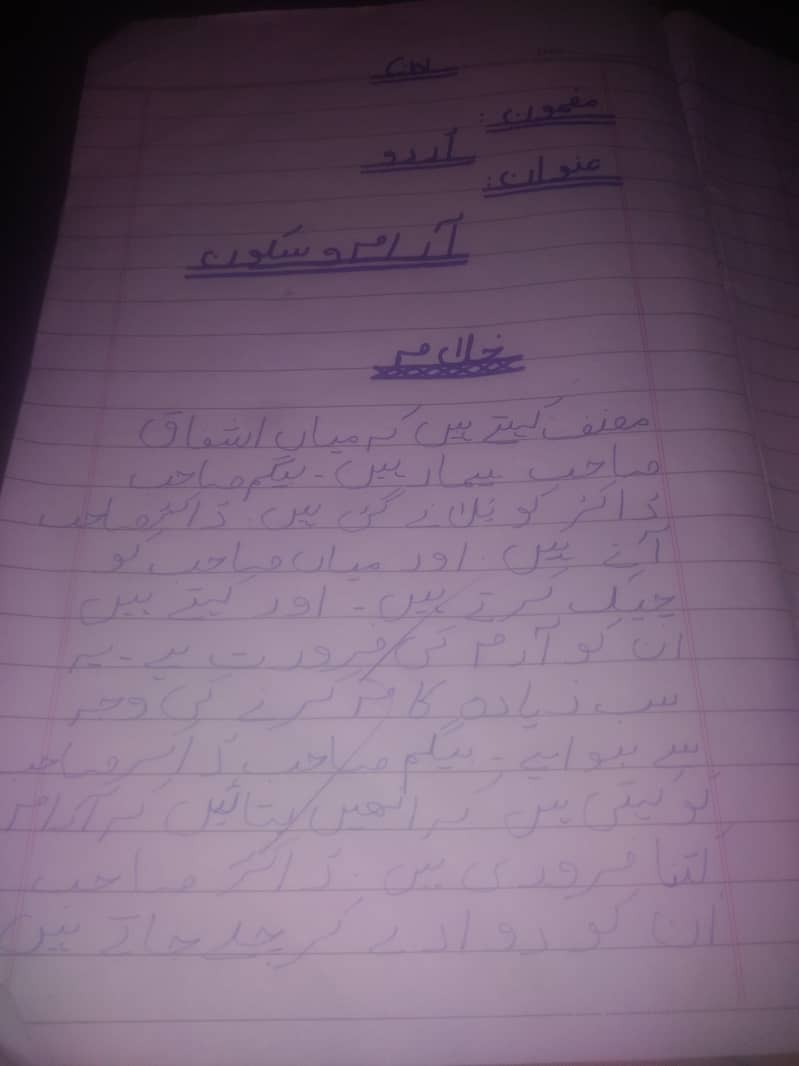 C.W
مضمون:
اُردو
عنوان:
آرام و سکون
خلاصہ
مصنف کہتے ہیں کہ میاں اشفاق
صاحب بیمار ہیں۔ بیگم صاحب
ڈاکٹر کو بلانے گئی ہیں۔ ڈاکٹر صاحب
آتے ہیں۔ اور میاں صاحب کو
چیک کرتے ہیں۔ اور کہتے ہیں
ان کو آرم کی ضرورت ہے۔ یہ
سب زیادہ کام کرنے کی وجہ
سے ہوا ہے۔ بیگم صاحب ڈاکٹر صاحب
کو کہتی ہیں کہ انھیں بتائیں کہ آرام
کتنا ضروری ہیں۔ ڈاکٹر صاحب
ان کو دوا دے کر چلے جاتے ہیں